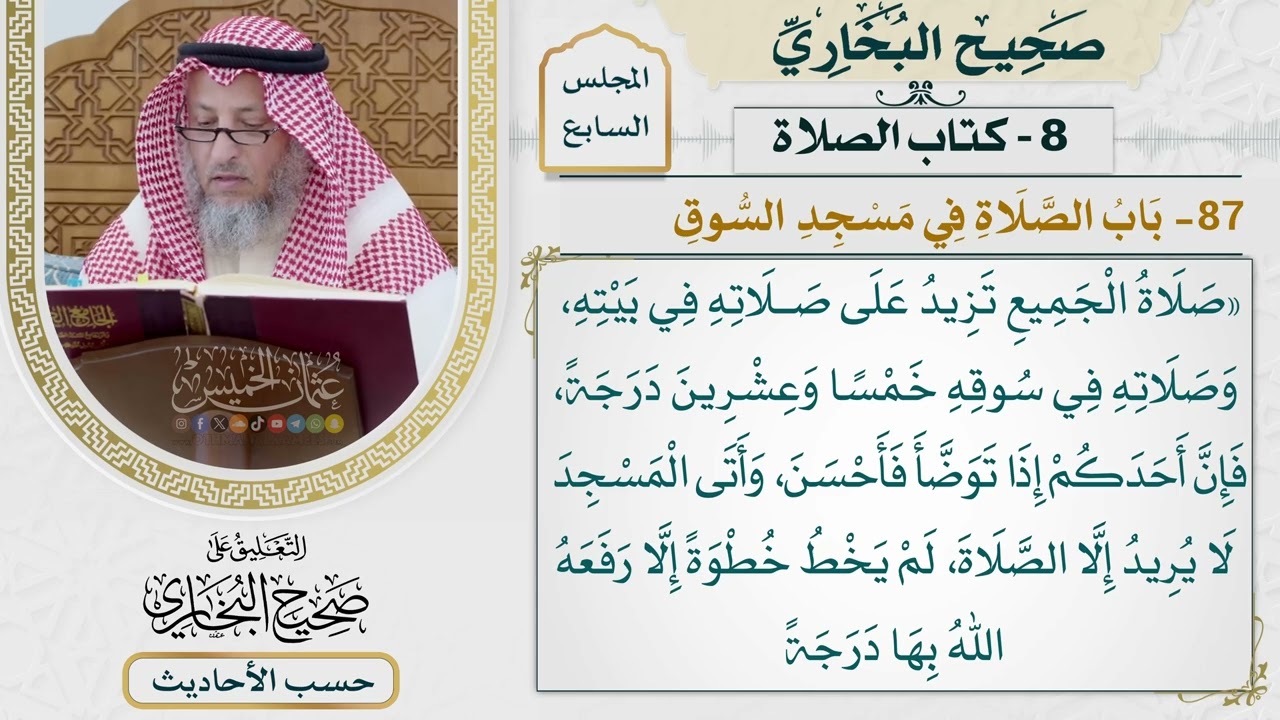 صَحِيح البُخَارِيِّ
8 - كتاب الصلاة
المجلس
السابع
87- بَابُ الصَّلَاةِ فِي مَسْجِدِ السُّوقِ
«صَلَاةُ الْجَمِيعِ تَزِيدُ عَلَى صَلَاتِهِ فِي بَيْتِهِ،
وَصَلَاتِهِ فِي سُوقِهِ خَمْسًا وَعِشْرِينَ دَرَجَةً،
فَإِنَّ أَحَدَكُمْ إِذَا تَوَضَّأَ فَأَحْسَنَ، وَأَتَى الْمَسْجِدَ
لَا يُرِيدُ إِلَّا الصَّلَاةَ، لَمْ يَخْطُ خُطْوَةً إِلَّا رَفَعَهُ
اللهُ بِهَا دَرَجَةً
عُثمَان الخَمِيس
التَّعْلِيقُ عَلَى
صَحِيح البُخَارِي
حسب الأحاديث